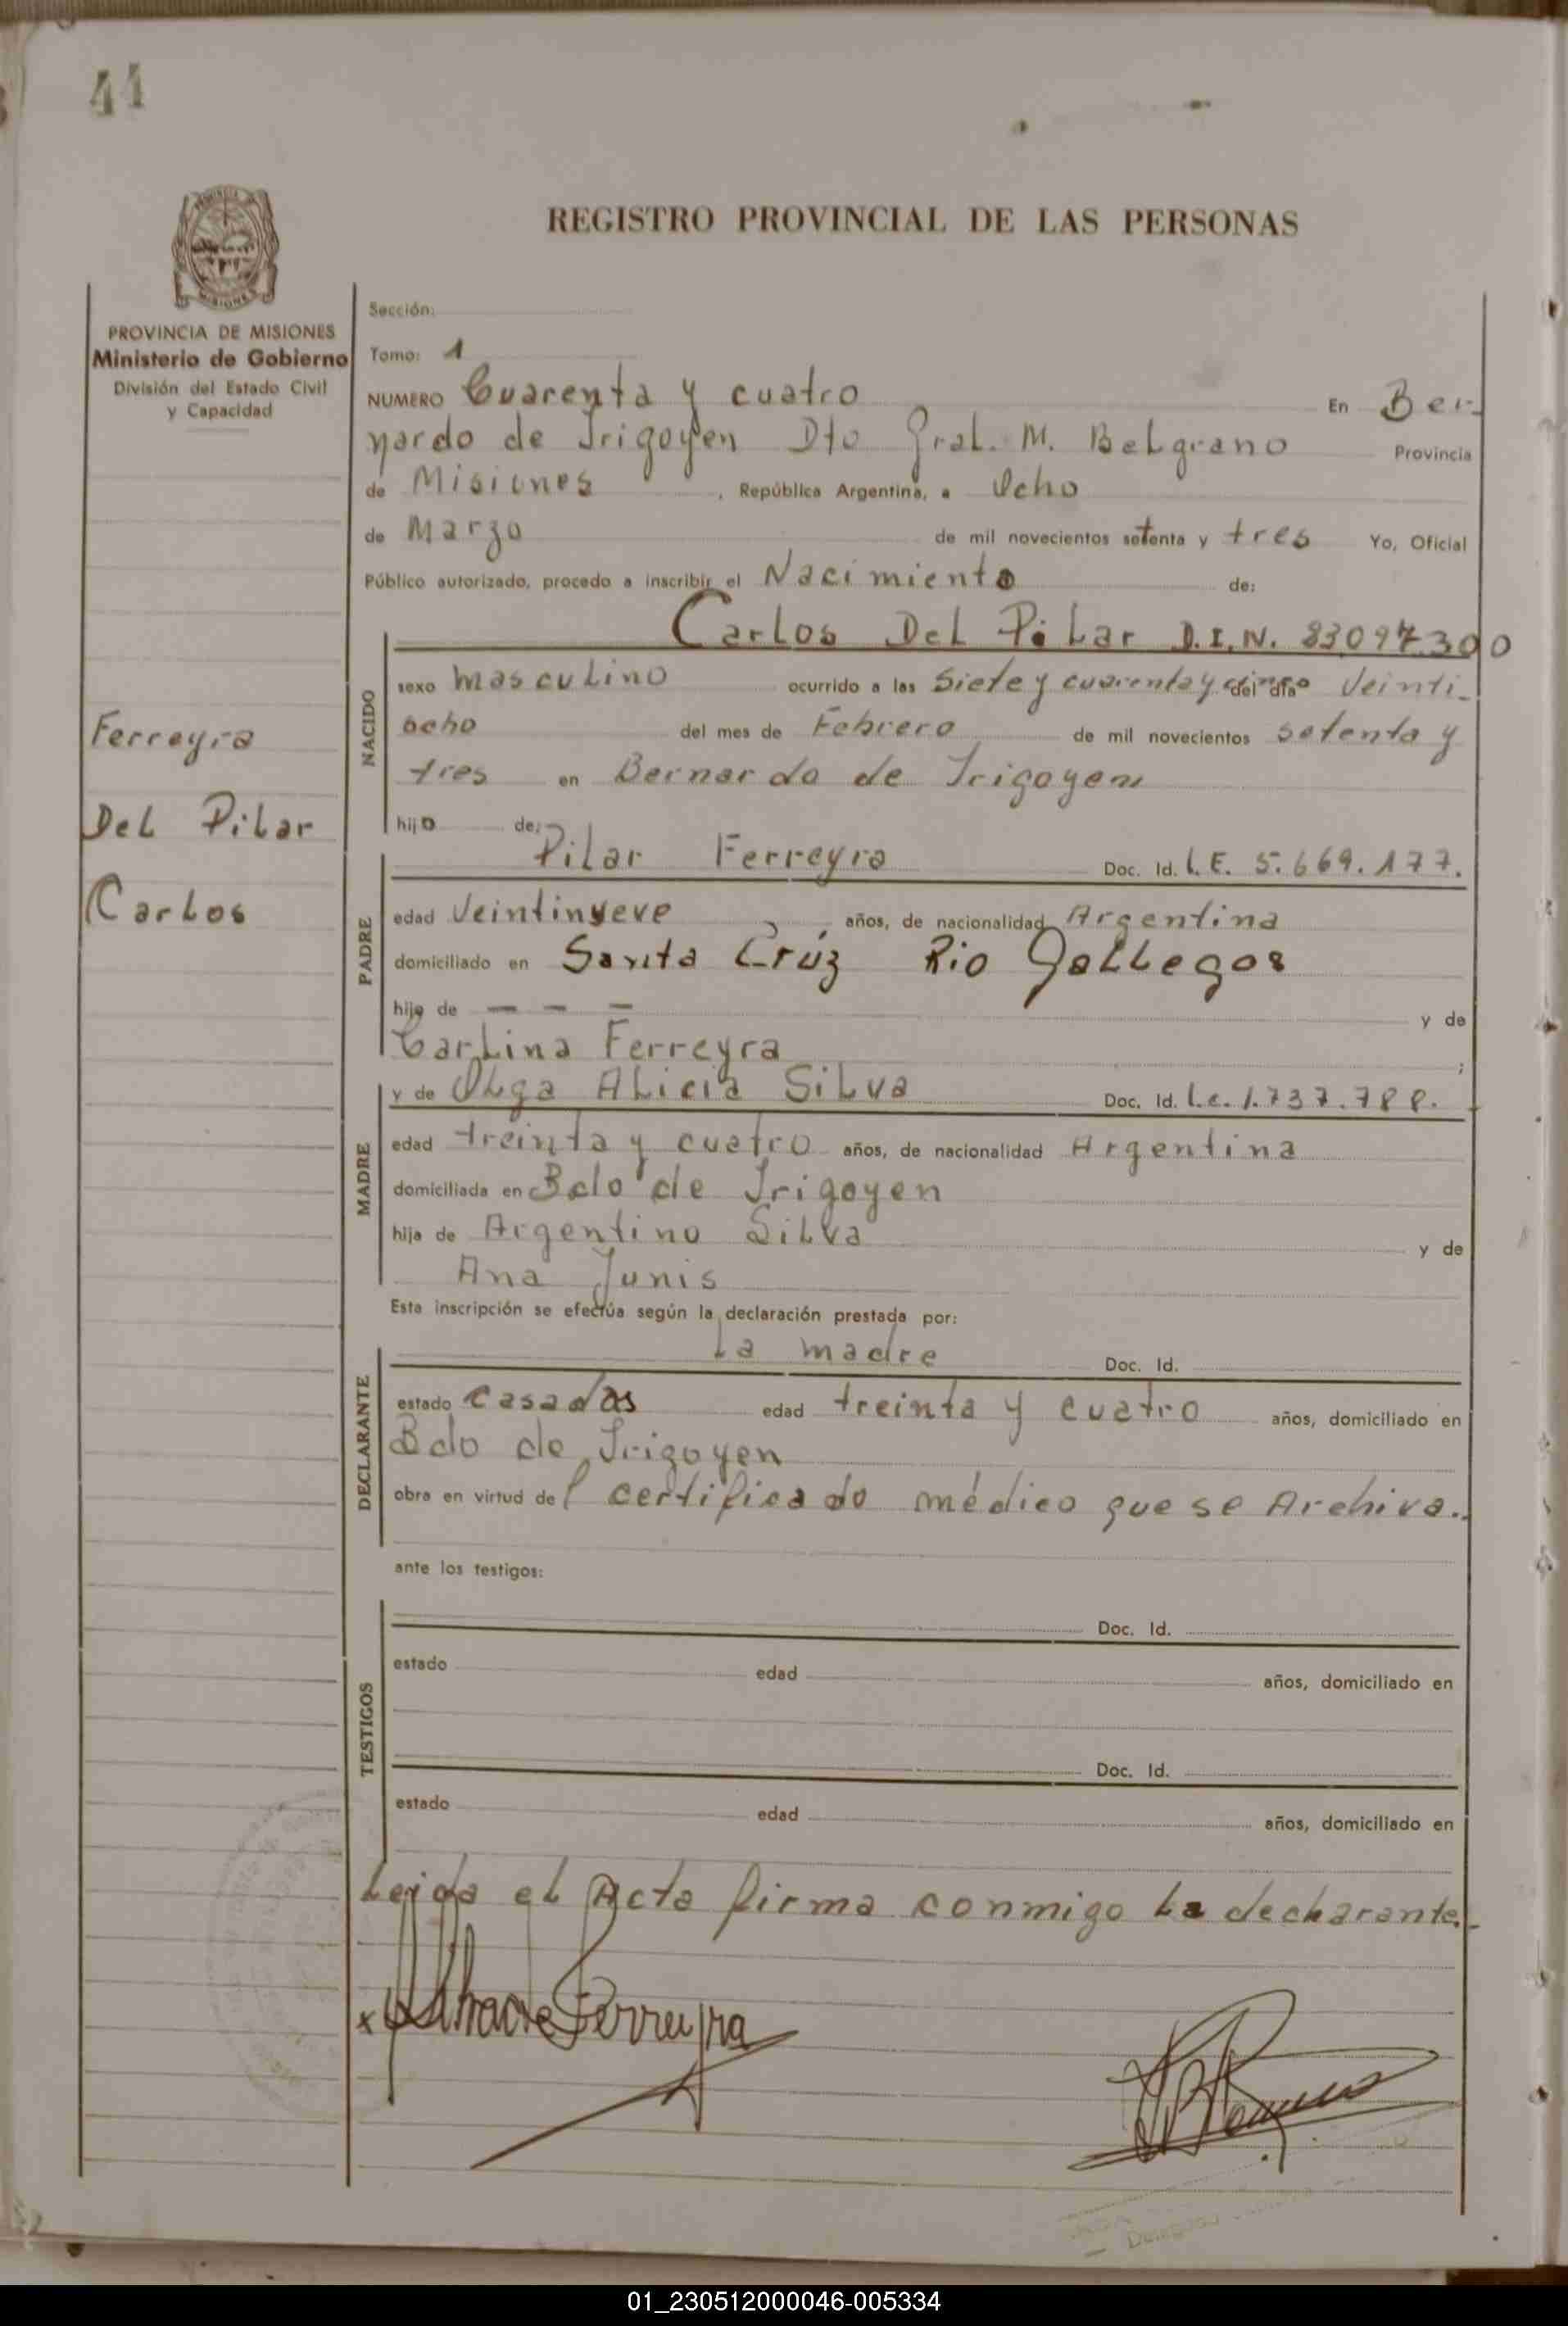 44
REGISTRO PROVINCIAL DE LAS PERSONAS
PROVINCIA DE MISIONES
Ministerio de Gobierno
División del Estado Civil
y Capacidad
Ferreyra
Del Pilar
Carlos
Sección:
Tomo: 1
NUMERO Cuarenta y cuatro En Ber-
nardo de Irigoyen Dto Gral. M. Belgrano Provincia
de Misiones, República Argentina, a Ocho
de Marzo de mil novecientos setenta y tres Yo, Oficial
Público autorizado, procedo a inscribir el Nacimiento de:
NACIDO
Carlos Del Pilar D.I.N. 23097300
sexo masculino ocurrido a las Siete y cuarenta y del día Veinti-
ocho del mes de Febrero de mil novecientos setenta y
tres en Bernardo de Irigoyen
hijo de:
PADRE
Pilar Ferreyra Doc. Id. L.E. 5.669.177.
edad Veintinueve años, de nacionalidad Argentina
domiciliado en Santa Crúz Rio Gallegos
hijo de — — — y de
Carlina Ferreyra ;
MADRE
y de Olga Alicia Silva Doc. Id. L.c. 1.737.788.
edad treinta y cuatro años, de nacionalidad Argentina
domiciliada en Bdo de Irigoyen
hija de Argentino Silva y de
Ana Junis
Esta inscripción se efectúa según la declaración prestada por:
DECLARANTE
La madre Doc. Id.
estado casadas edad treinta y cuatro años, domiciliado en
Bdo de Irigoyen
obra en virtud del certificado médico que se Archiva.
ante los testigos:
TESTIGOS
Doc. Id.
estado edad años, domiciliado en
Doc. Id.
estado edad años, domiciliado en
Leida el Acta firma conmigo la declarante.-
x Silva de Ferreyra
01_230512000046-005334